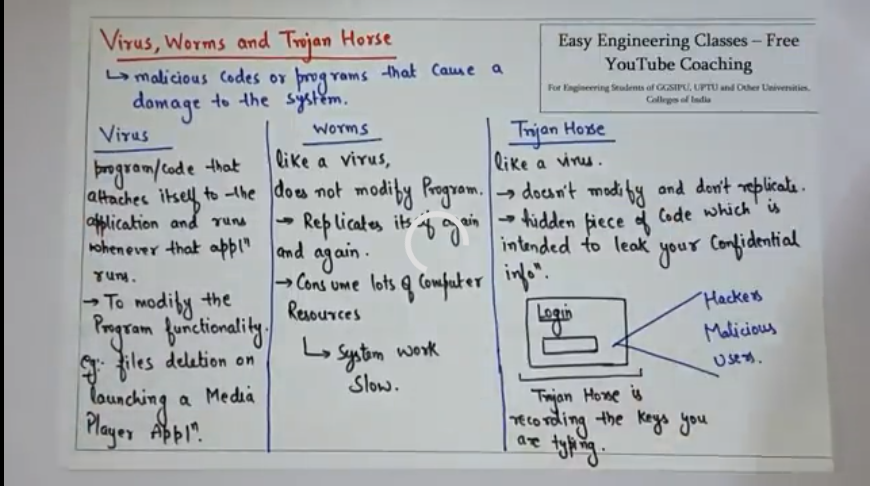 Virus, Worms and Trojan Horse
↳ malicious codes or programs that cause a
damage to the system.
Easy Engineering Classes – Free
YouTube Coaching
For Engineering Students of GGSIPU, UPTU and Other Universities,
Colleges of India
Virus
program/code that
attaches itself to the
application and runs
whenever that applⁿ
runs.
→ To modify the
Program functionality.
eg:- files deletion on
launching a Media
Player Applⁿ.
Worms
like a virus,
does not modify Program.
→ Replicates itself again
and again.
→ Consume lots of Computer
Resources
↳ System work
Slow.
Trojan Horse
like a virus.
→ doesn't modify and don't replicate.
→ hidden piece of Code which is
intended to leak your Confidential
infoⁿ.
Login
Hackers
Malicious
Users.
Trojan Horse is
recording the keys you
are typing.